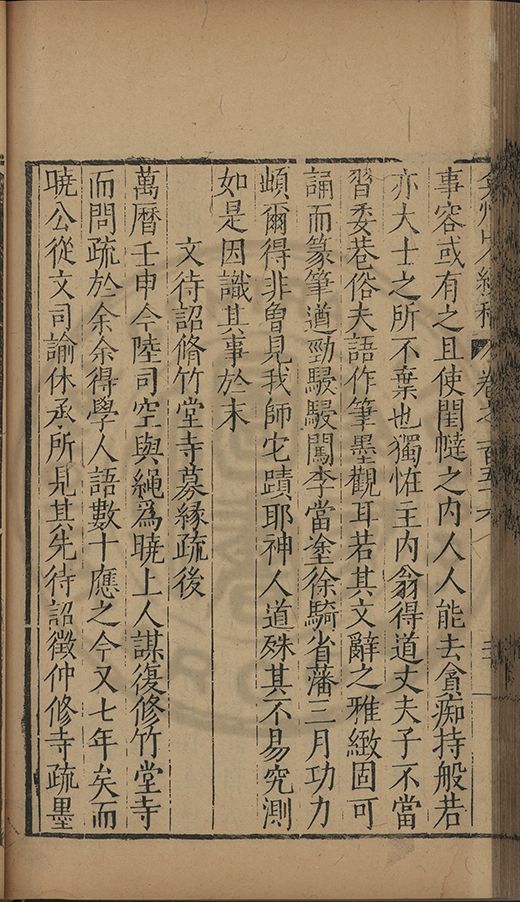 弇州山人續稿 卷之一百五十六
事容或有之且使閨闥之内人人能去貪痴持般若
亦大士之所不棄也獨恠主内翁得道丈夫子不當
習委巷俗夫語作筆墨觀耳若其文辭之雅緻固可
誦而篆筆遒勁駸駸闖李當塗徐騎省藩三月功力
頔爾得非曾見我師宅蹟耶神人道殊其不易究測
如是因識其事於末
文待詔脩竹堂寺募緣疏後
萬曆壬申今陸司空與繩為曉上人謀復修竹堂寺
而問疏於余余得學人語數十應之今又七年矣而
曉公從文司諭休承所見其先待詔徵仲修寺疏墨